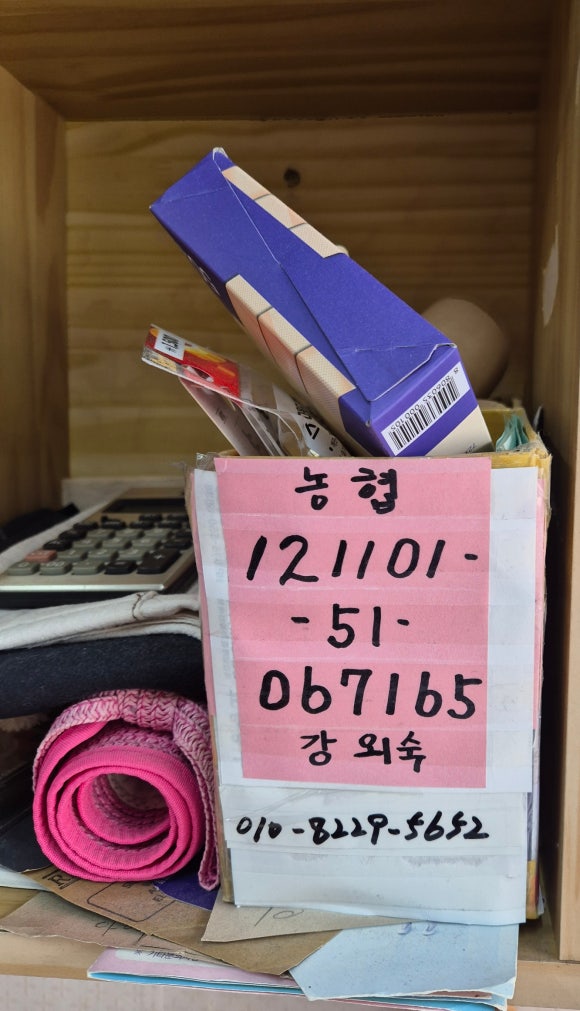 농협
121101-
-51-
067165
강외숙
010-8229-5652